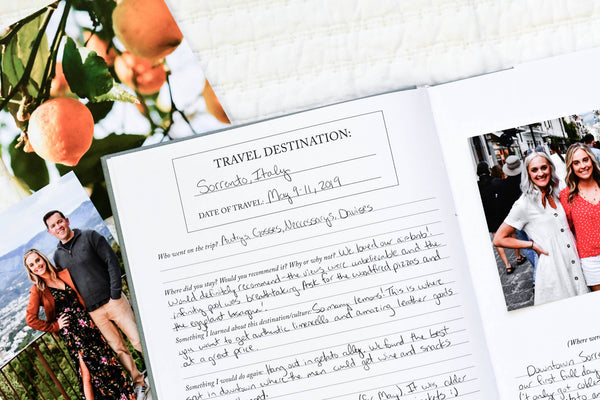 TRAVEL DESTINATION:
Sorrento, Italy
DATE OF TRAVEL: May 9-11, 2019
Who went on the trip? Crosses, Necessarys, Davises
Where did you stay? Would you recommend it? Why or why not? We loved our airbnb!
Would definitely recommend - the views were unbelievable and the
infinity pool was breathtaking. Ask for the woodfired pizzas and
the eggplant lasagna!
Something I learned about this destination/culture: So many lemons! This is where
you want to get authentic limoncello and amazing leather goods
at a great price.
Something I would do again: Hang out in gelato alley, we found the best
spot in downtown where the men could get wine and snacks
(for May) It was colder
(Where
Downtown Sorre
our first full day